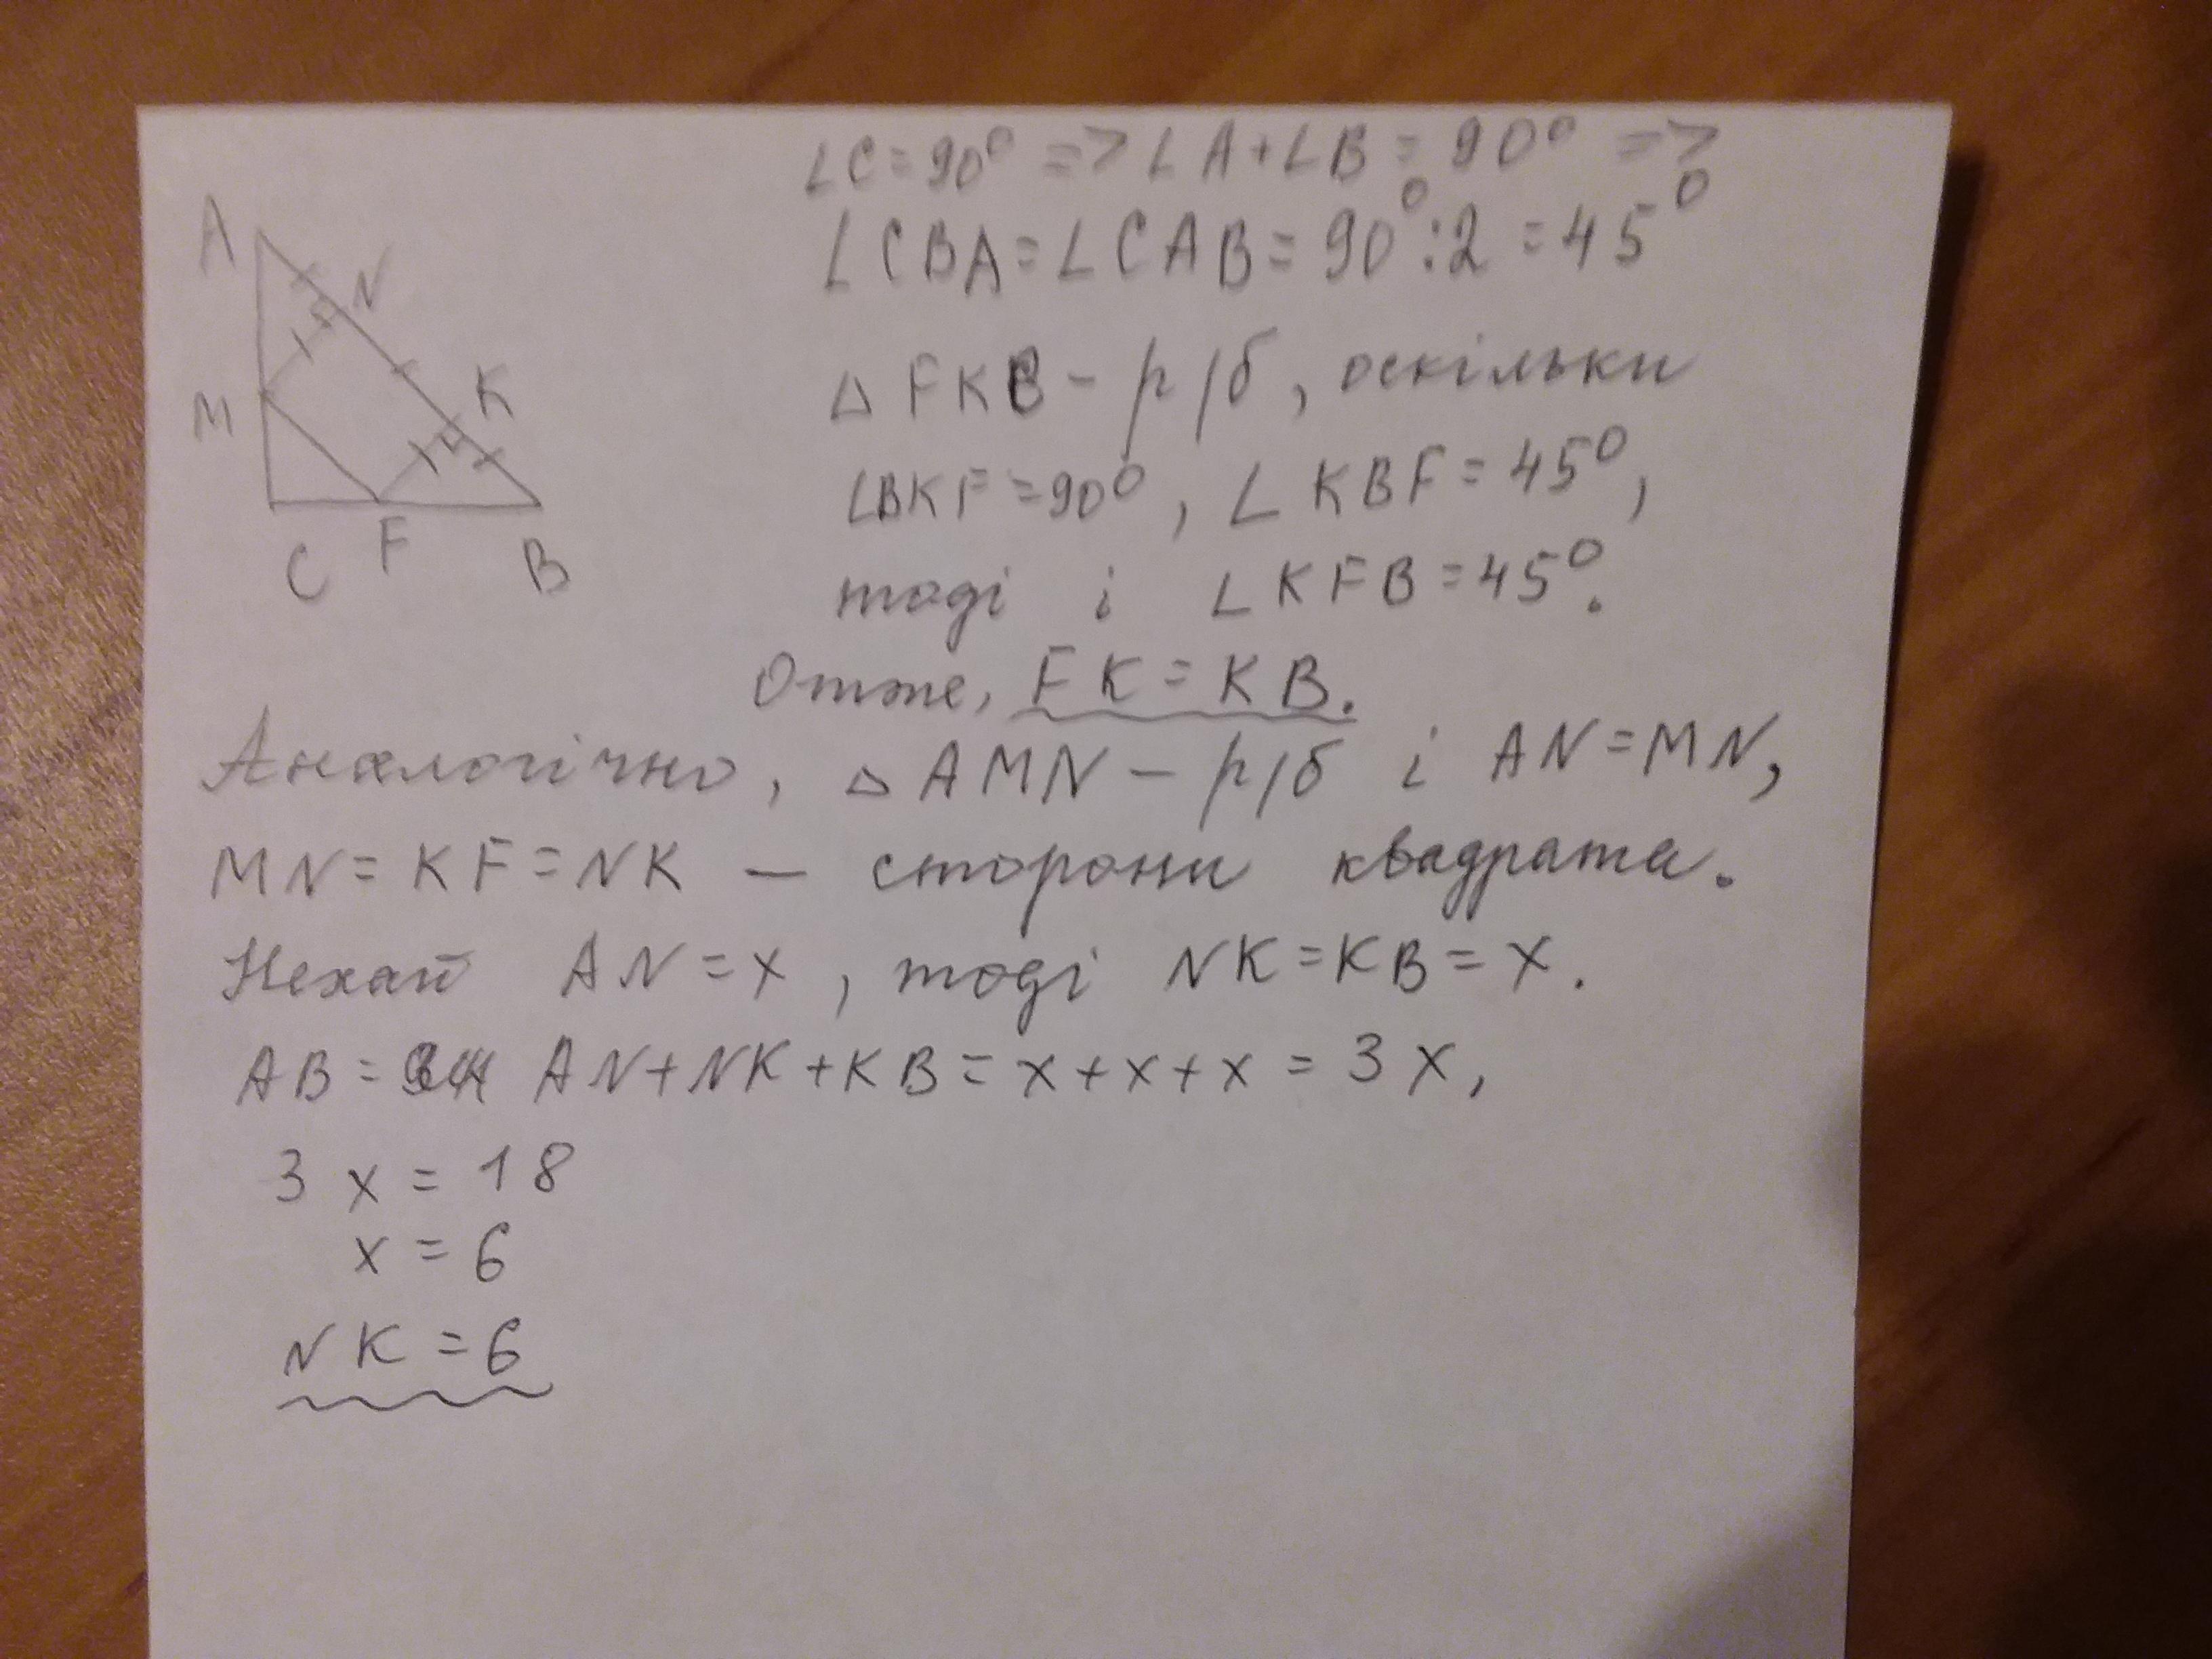 ∠C=90° => ∠A+∠B=90° =>
∠CBA=∠CAB=90°:2=45°
A
N
M
K
C F B
△FKB - р/б, оскільки
∠BKF=90°, ∠KBF=45°,
тоді і ∠KFB=45°.
Отже, FK=KB.
Аналогічно, △AMN - р/б і AN=MN,
MN=KF=NK - сторони квадрата.
Нехай AN=x, тоді NK=KB=x.
AB= AN+NK+KB=x+x+x=3x,
3x=18
x=6
NK=6